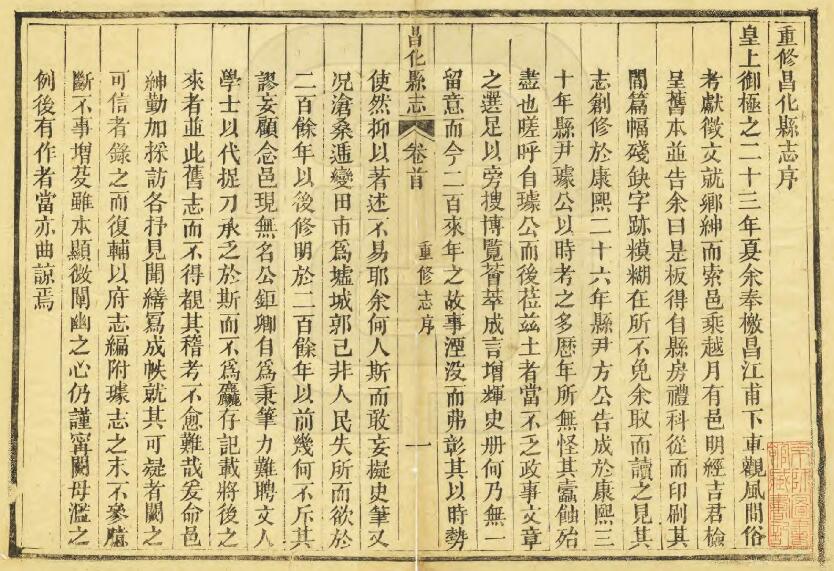 重修昌化縣志序
皇上御極之二十三年夏余奉檄昌江甫下車觀風問俗
考獻徵文就鄉紳而索邑乘越月有邑明經吉君檢
呈舊本並告余曰是板得自縣房禮科從而印刷其
間篇幅殘缺字跡糢糊在所不免余取而讀之見其
志創修於康熙二十六年縣尹方公告成於康熙三
十年縣尹璩公以時考之多歷年所無怪其蠹蝕殆
盡也嗟呼自璩公而後莅兹土者當不乏政事文章
之選足以旁搜博覽薈萃成言增輝史册何乃無一
留意而今二百來年之故事湮没而弗彰其以時勢
昌化縣志
卷首
重修志序
一
使然抑以著述不易耶余何人斯而敢妄擬史筆又
况滄桑遞變田市爲墟城郭已非人民失所而欲於
二百餘年以後修明於二百餘年以前幾何不斥其
謬妄顧念邑現無名公鉅卿自爲秉筆力難聘文人
學士以代捉刀承乏於斯而不爲麤存記載將後之
來者並此舊志而不得覩其稽考不愈難哉爰命邑
紳勤加採訪各抒見聞繕寫成帙就其可疑者闕之
可信者錄之而復輔以府志編附璩志之末不參臆
斷不事增芟雖本顯微闡幽之心仍謹甯闕毋濫之
例後有作者當亦曲諒焉